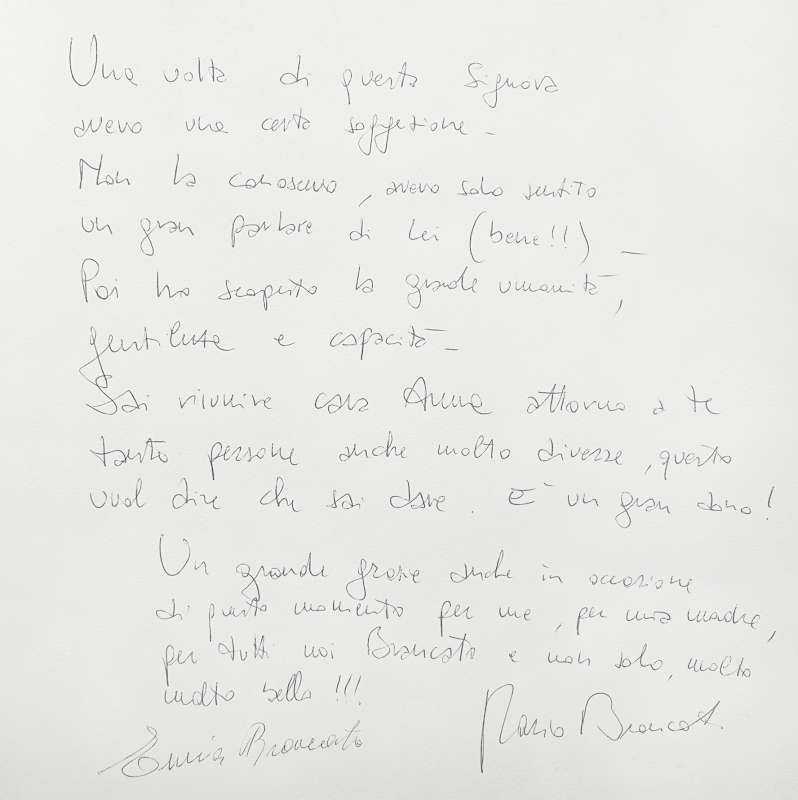 Una volta di questa Signora
avevo una certa soggezione -
Non la conoscevo, avevo solo sentito
un gran parlare di Lei (bene!!) -
Poi ho scoperto la grande umanità,
gentilezza e capacità -
Sai riunire cara Anna attorno a te
tante persone anche molto diverse, questo
vuol dire che sai dare. E' un gran dono!
Un grande grazie anche in occasione
di questo momento per me, per mia madre,
per tutti noi Brancato e non solo, molto
molto bello !!!
Brancato
Mario Brancato